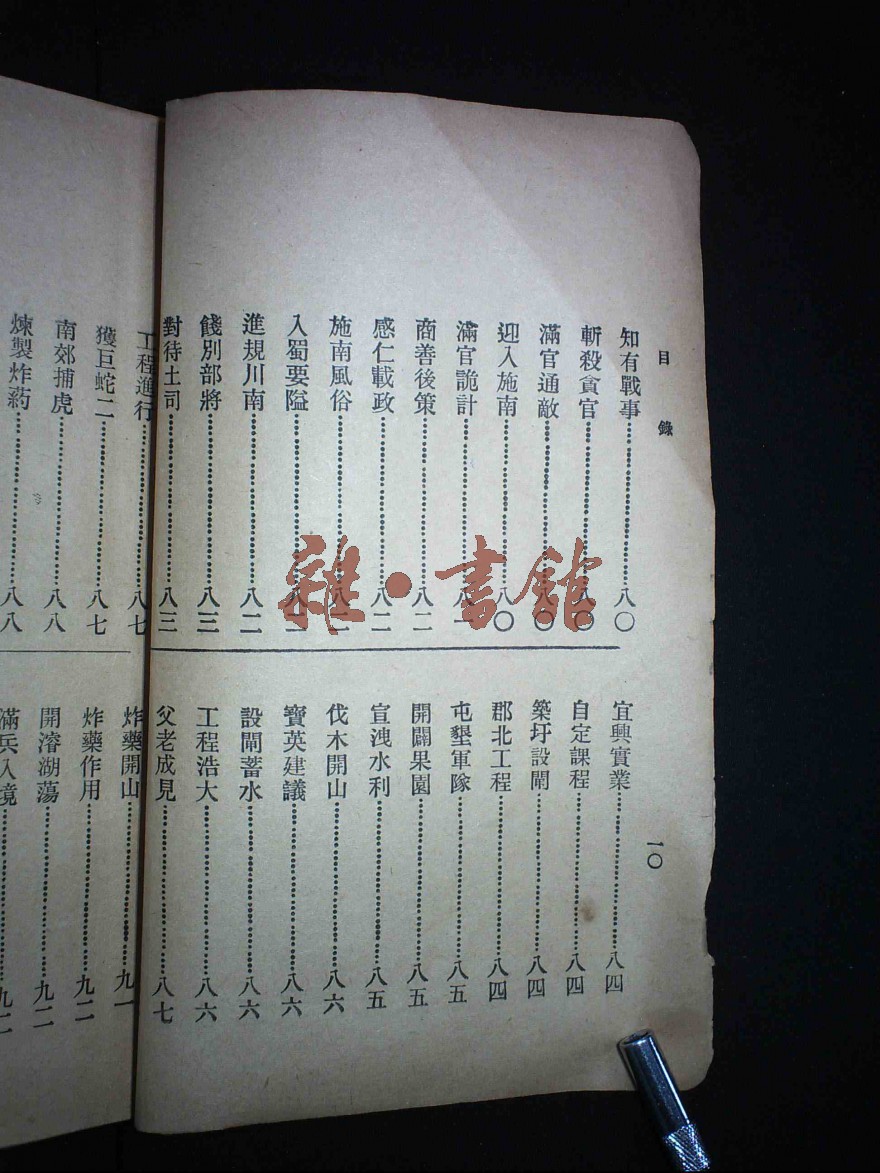 目錄
知有戰事⋯⋯八〇
斬殺貪官⋯⋯八〇
滿官通敵⋯⋯八〇
迎入施南⋯⋯八〇
滿官詭計⋯⋯八一
商善後策⋯⋯八一
感仁載政⋯⋯八二
施南風俗⋯⋯八二
入蜀要隘⋯⋯八二
進規川南⋯⋯八二
餞別部將⋯⋯八三
對待土司⋯⋯八三
宜興實業⋯⋯八四
自定課程⋯⋯八四
築圩設閘⋯⋯八四
郡北工程⋯⋯八四
屯墾軍隊⋯⋯八五
開闢果園⋯⋯八五
宣洩水利⋯⋯八五
伐木開山⋯⋯八六
寶英建議⋯⋯八六
設閘蓄水⋯⋯八六
工程浩大⋯⋯八六
父老成見⋯⋯八七
一〇
工程進行⋯⋯八七
獲巨蛇二⋯⋯八七
南郊捕虎⋯⋯八八
煉製炸葯⋯⋯八八
炸藥開山⋯⋯九一
炸藥作用⋯⋯九二
開濬湖蕩⋯⋯九二
滿兵入境⋯⋯九二
雜·書館